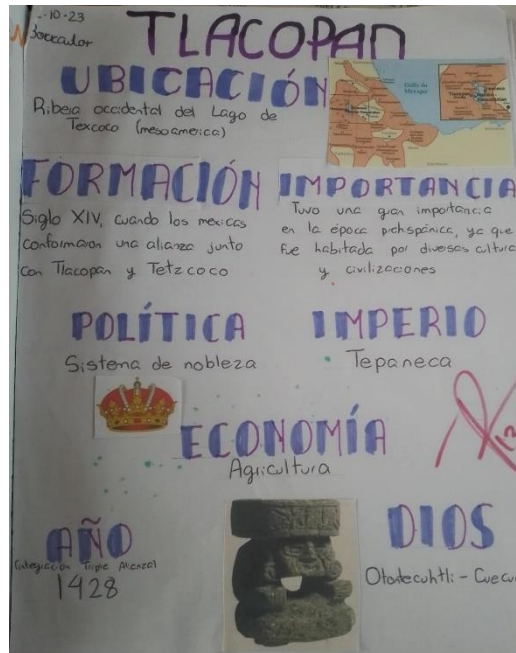 -10-23
Borrador
TLACOPAN
UBICACIÓN
Ribera occidental del Lago de
Texcoco (mesoamerica)
Golfo de
Mexico
FORMACIÓN
Siglo XIV, cuando los mexicas
conformaron una alianza junto
con Tlacopan y Tetzcoco
IMPORTANCIA
Tuvo una gran importancia
en la época prehispánica, ya que
fue habitada por diversas cultura
y civilizaciones
POLÍTICA
Sistema de nobleza
IMPERIO
Tepaneca
ECONOMÍA
Agricultura
AÑO
(integración Triple Alianza)
1428
DIOS
Otontecuhtli - Cuecu